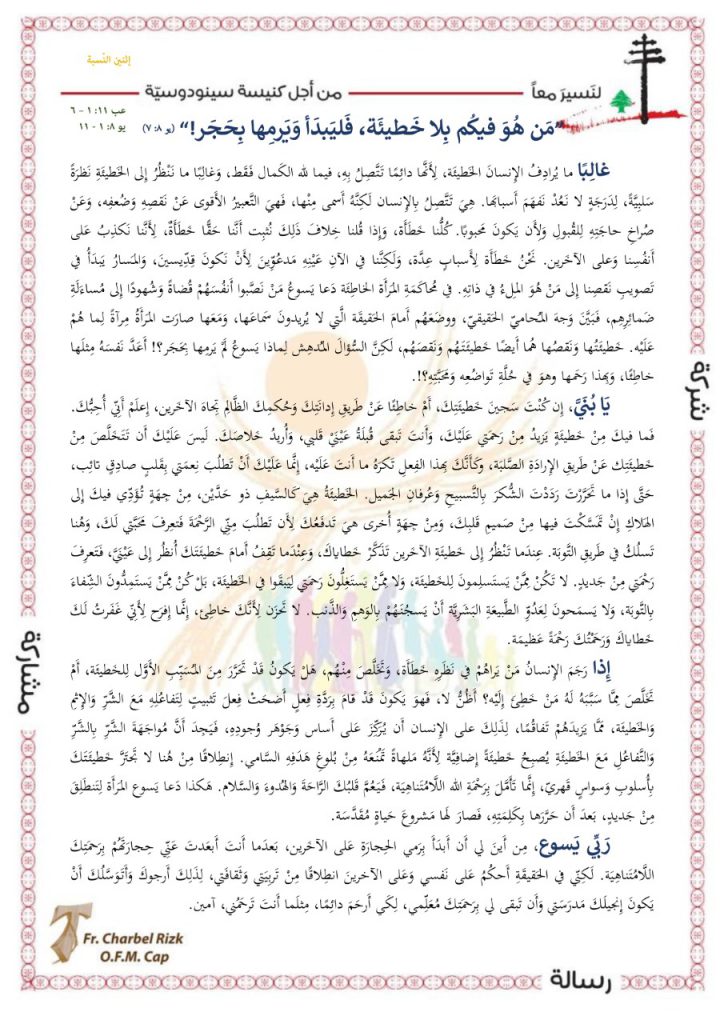 إثنين النّسبة
لنَسيرَ معاً
من أجل كنيسة سينودوسيّة
عب ١١: ١ - ٦
يو ٨: ١ - ١١
"مَن هُوَ فيكُم بِلا خَطيئَة، فَليَبدَأ وَيَرمِها بِحَجَر!" (يو ٨: ٧)
غالِبًا ما يُرادِفُ الإنسانَ الخَطيئَة، لِأَنَّها دائِمًا تَتَّصِلُ بِهِ، فيما لله الكَمال فَقَط، وَغالِبًا ما نَنْظُرُ إلى الخَطيئَةِ نَظرَةً
سَلبِيَّةً، لِدَرَجَةِ لا نَعُدْ نَفهَمَ أسبابَها. هِيَ تَتَّصِلُ بِالإنسان لَكِنَّهُ أَسمى مِنْها، فَهِيَ التَّعبيرُ الأقوى عَنْ نَقصِهِ وَضُعفِه، وَعَنْ
صُراخِ حاجَتِهِ لِلقُبولِ وَلِأَن يَكونَ مَحبوبًا. كُلُّنا خَطَأَة، وَإذا قُلنا خِلافَ ذَلِكَ نُثبِت أَنَّنا حَقًّا خَطَأَةٌ، لِأَنَّنا نَكذِبُ عَلى
أَنفُسِنا وَعَلى الآخَرين. نَحْنُ خَطَأَة لِأَسبابٍ عِدَّة، وَلَكِنَّنا في الآنِ عَيْنِهِ مَدعُوّينَ لِأَنْ نَكونَ قِدّيسين، وَالمَسارُ يَبدَأُ في
تَصويبِ نَقصِنا إلى مَنْ هُوَ المِلءُ في ذاتِهِ. في مُحاكَمَةِ المَرأَة الخاطِئَة دَعا يَسوعُ مَنْ نَصَّبوا أَنفُسَهُمْ قُضاةً وَشُهودًا إلى مُساءَلَةِ
ضَمائِرِهِم، فَبَيَّنَ وَجهَ المُحامِيِّ الحَقيقِيّ، وَوضَعَهُم أَمامَ الحَقيقَة الَّتي لا يُريدونَ سَماعَها، وَمَعَها صارَت المَرأَةُ مِرآةً لِما هُمْ
عَلَيْه. خَطيئَتُها وَنَقصُها هُما أَيضًا خَطيئَتَهُم وَنَقصَهُم، لَكِنَّ السُّؤالَ المُدهِش لِماذا يَسوعُ لَمْ يَرمِها بِحَجَر؟! أَعَدَّ نَفسَهُ مِثلَها
خاطِئًا، وَبِهذا رَحَمها وهوَ في حُلَّةِ تَواضُعِه وَمَحَبَّتِهِ؟!.
يَا بُنَيَّ، إن كُنْتَ سَجينَ خَطيئَتِكَ، أَمْ خاطِئًا عَنْ طَريقِ إدانَتِكَ وَحُكمِكَ الظّالِمِ تِجاهَ الآخَرين، إعلَمْ أَنّي أُحِبُّكَ.
فَما فيكَ مِنْ خَطيئَةٍ يَزيدُ مِنْ رَحمَتي عَلَيْكَ، وَأَنتَ تَبقى قُبلَةُ عَيْنَيَّ قَلبي، وَأُريدُ خَلاصَكَ. لَيسَ عَلَيْكَ أَن تَتَخَلَّصَ مِنْ
خَطيئَتِكَ عَنْ طَريقِ الإرادَةِ الصَّلبَة، وَكَأَنَّكَ بِهذا الفِعلِ تَكرَهُ ما أَنتَ عَلَيْه، إنَّما عَلَيْكَ أَنْ تَطلُبَ نِعمَتي بِقَلبٍ صادِقٍ تائِب،
حَتَّى إذا ما تَحَرَّرْتَ رَدَدْتَ الشُّكرَ بِالتَّسبيحِ وَعُرفانِ الجَميل. الخَطيئَةُ هِيَ كَالسَّيفِ ذو حَدَّيْن، مِنْ جِهَةٍ تُؤَدّي فيكَ إلى
الهَلاكِ إنْ تَمَسَّكْتَ فيها مِنْ صَميمِ قَلبِكَ، وَمِنْ جِهَةٍ أُخرى هِيَ تَدفَعُكَ لِأَن تَطلُبَ مِنّي الرَّحْمَةَ فَتَعرِفَ مَحَبَّتي لَكَ، وَهُنا
تَسلُكُ في طَريقِ التَّوبَة. عِندَما تَنْظُرُ إلى خَطيئَةِ الآخَرين تَذَكَّرْ خَطاياكَ، وَعِنْدَما تَقِفُ أَمامَ خَطيئَتَكَ أُنظُر إلى عَيْنَيَّ، فَتَعرِفَ
رَحْمَتي مِنْ جَديدٍ. لا تَكُنْ مِمَّنْ يَستَسلِمونَ لِلخَطيئَة، وَلا مِمَّنْ يَستَغِلُّونَ رَحمَتي لِيَبقَوا في الخَطيئَة، بَل كُنْ مِمَّنْ يَستَمِدُّونَ الشِّفاءَ
بِالتَّوبَة، وَلا يَسمَحونَ لِعَدُوِّ الطَّبيعَةِ البَشَرِيَّةِ أَنْ يَسجُنَهُمْ بِالوَهمِ وَالذَّنب. لا تَحزَن لِأَنَّكَ خاطِئ، إنَّما إفرَح لِأَنّي غَفَرتُ لَكَ
خَطاياكَ وَرَحَمْتُكَ رَحْمَةً عَظيمَة.
إذا رَجَمَ الإنسانُ مَنْ يَراهُمْ في نَظَرِهِ خَطَأَة، وَتَخَلَّصَ مِنْهُم، هَلْ يَكونُ قَدْ تَحَرَّرَ مِنَ المُسَبِّبِ الأَوَّل لِلخَطيئَة، أَمْ
تَخَلَّصَ مِمَّا سَبَّبَهُ لَهُ مَنْ خَطِئَ إلَيْه؟ أَظُنُّ لا، فَهوَ يَكونُ قَدْ قامَ بِرَدَّةِ فِعلٍ أَضحَتْ فِعلَ تَثبيتٍ لِتَفاعُلِهِ مَعَ الشَّرِّ وَالإثمِ
وَالخَطيئَة، مِمَّا يَزيدَهُمْ تَفاقُمًا، لِذَلِكَ عَلى الإنسان أن يُرَكِّزَ عَلى أَساس وَجَوْهَر وُجودِهِ، فَيَجِدَ أَنَّ مُواجَهَةَ الشَّرِّ بِالشَّرِّ
وَالتَّفاعُلِ مَعَ الخَطيئَةِ يُصبِحُ خَطيئَةً إضافِيَّةً لِأَنَّهُ مَلهاةٌ تَمنَعُهُ مِنْ بُلوغِ هَدَفِهِ السّامي. إنطِلاقًا مِنْ هُنا لا تَجتَرَّ خَطيئَتَكَ
بِأُسلوبٍ وَسواسٍ قَهرِيّ، إنَّما تَأَمَّلْ بِرَحْمَةِ الله اللّامُتناهِيَة، فَيَعُمَّ قَلبُكَ الرَّاحَةَ وَالهُدوءَ وَالسَّلام. هَكَذا دَعا يَسوع المَرأَةَ لِتَنطَلِقَ
مِنْ جَديد، بَعدَ أَن حَرَّرَها بِكَلِمَتِهِ، فَصارَ لَها مَشروعَ حَياةٍ مُقَدَّسَة.
رَبّي يَسوع، مِن أَينَ لي أَن أَبدَأَ بِرَمي الحِجارَةِ عَلى الآخَرين، بَعدَما أنتَ أَبعَدتَ عَنّي حِجارَتَهُمْ بِرَحمَتِكَ
اللّامُتَناهِيَة. لَكِنّي في الحَقيقَةِ أَحكُمُ عَلى نَفسي وَعَلى الآخَرينَ انطِلاقًا مِنْ تَربِيَتي وَثَقافَتي، لِذَلِكَ أَرجوكَ وَأَتَوَسَّلُكَ أَنْ
يَكونَ إنجيلُكَ مَدرَسَتي وَأَن تَبقى لي بِرَحمَتِكَ مُعَلِّمي، لِكَي أَرحَم دائِمًا، مِثلَما أَنتَ تَرحَمُني، آمين.
شركة
مشاركة
رسالة
Fr. Charbel Rizk
O.F.M. Cap